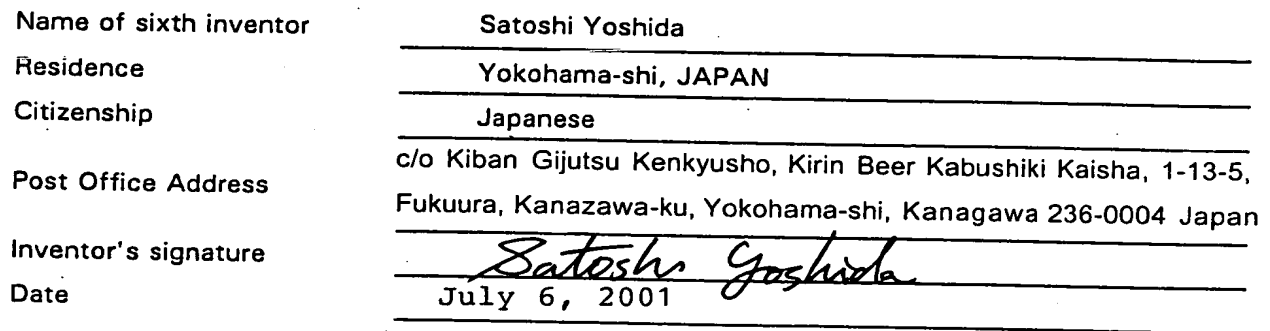 Name of sixth inventor Satoshi Yoshida
Residence Yokohama-shi, JAPAN
Citizenship Japanese
Post Office Address c/o Kiban Gijutsu Kenkyusho, Kirin Beer Kabushiki Kaisha, 1-13-5,
Fukuura, Kanazawa-ku, Yokohama-shi, Kanagawa 236-0004 Japan
Inventor's signature Satoshi Yoshida
Date July 6, 2001